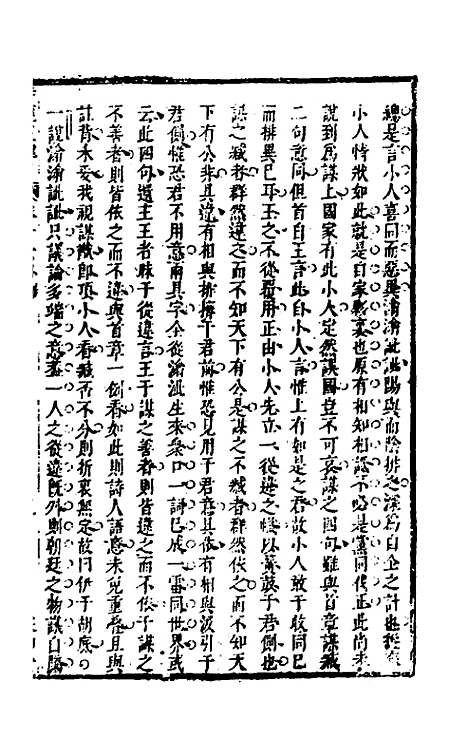 總是言小人喜同而惡異潝潝訿訿陽與而陰排之深爲自全之計也從來
小人情狀如此就是自家夥裏也原有相知相識不必是黨同伐正此尚未
說到爲謀上國家有此小人定然謀國豈不可哀謀之四句雖與首章謀臧
二句意同但首自王言此自小人言惟上有如是之君故小人敢于敢同已
而排異已耳王之不從覆用正由小人先立一從違之以簧鼓于君側也
謀之臧者群然違之而不知天下有公是謀之不臧者群然依之而不知天
下有公非具違有相與排擠于君前惟恐見用于君意具依有相與汲引于
君側惟恐君不用意兩具字全從潝訿生來衆口一詞已成一雷同世界或
云此四句還主王者昧于從違言王于謀之善者則皆違之而不依于謀之
不善者則皆依之而不違與首章一例看如此則詩人語意未免重疊且與
註背未妥我視謀猶即頂小人看臧否不分則折衷無定故曰伊于胡底
一說潝潝訿訿只議論多端之意蓋一人之從違旣外則朝廷之物議日